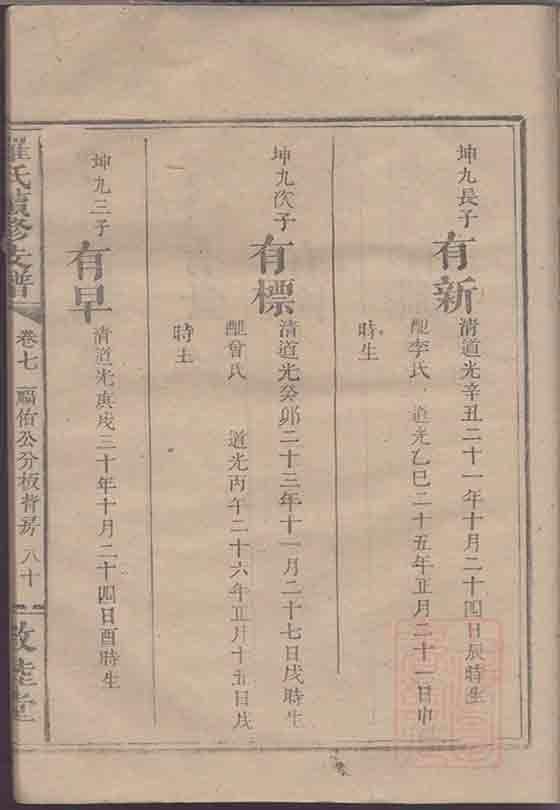 坤九長子
有新
清道光辛丑二十一年十月二十四日辰時生
配李氏 道光乙巳二十五年正月二十一日申
時生
坤九次子
有標
清道光癸卯二十三年十一月二十七日戌時生
配曾氏 道光丙午二十六年正月十五日戌
時生
坤九三子
有早
清道光庚戌三十年十月二十四日酉時生
羅氏續修支譜
卷七 福佑公分板背房 八十
敦睦堂